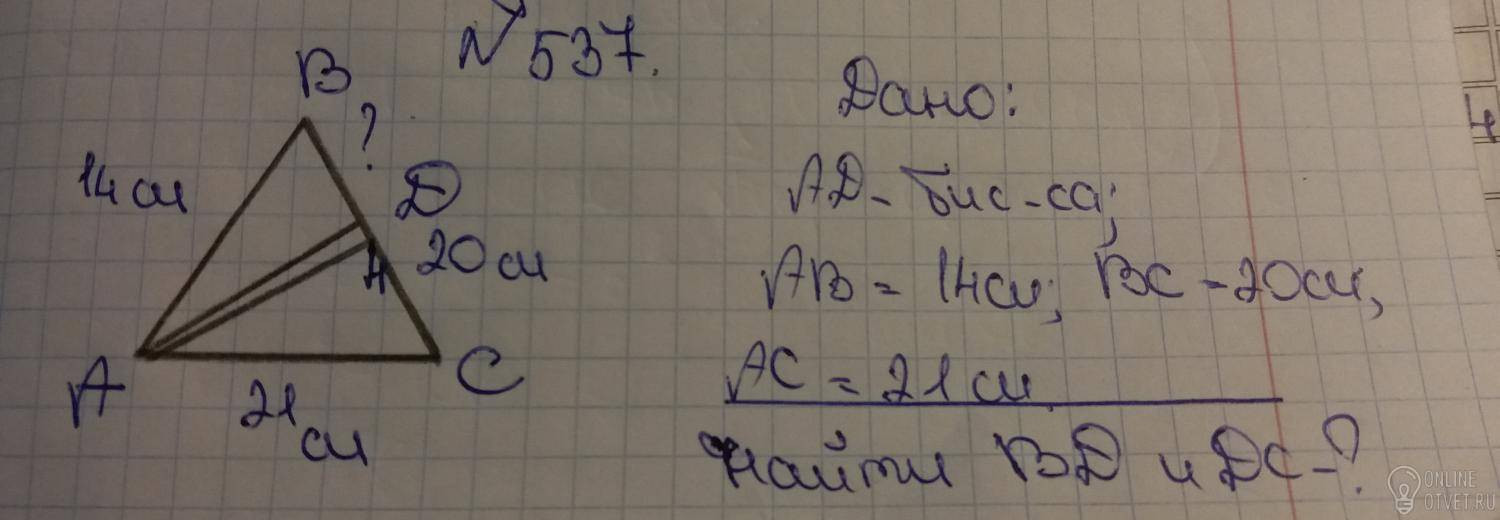 № 537.
B
?
14 см
D
H
20 см
A
C
21
см
Дано:
AD - бис-са;
AB = 14 см; BC - 20 см,
AC = 21 см
Найти BD и DC - ?
4
ONLINE
OTVET.RU